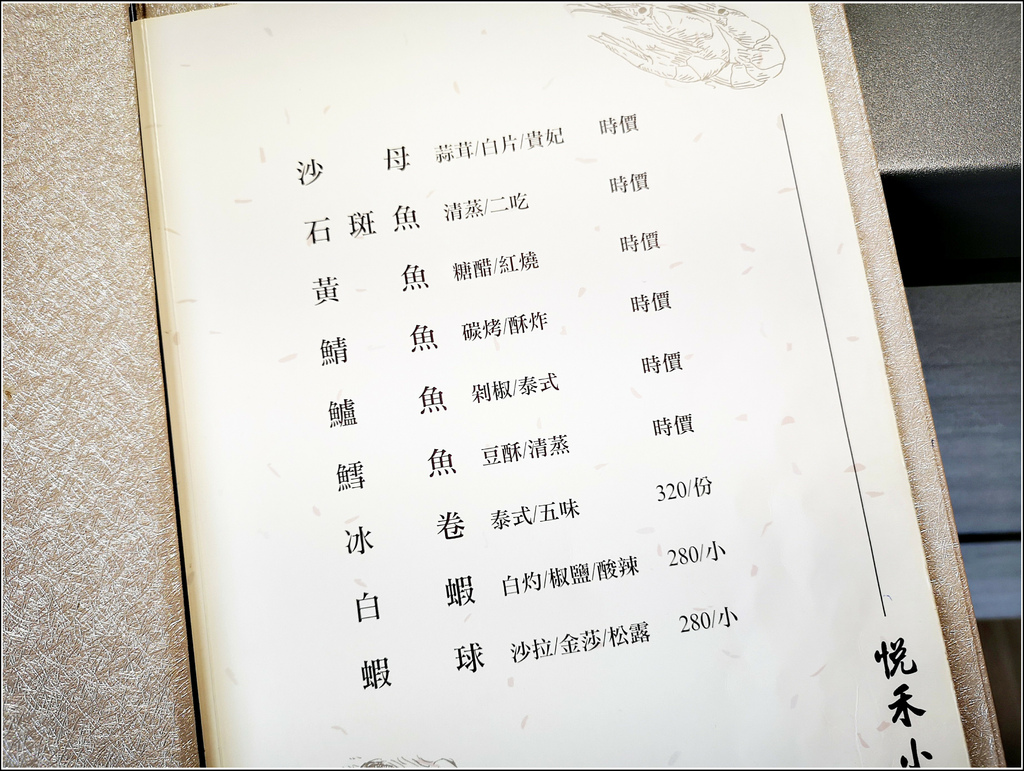 沙母 蒜茸/白片/貴妃 時價
石斑魚 清蒸/二吃 時價
黃魚 糖醋/紅燒 時價
鯖魚 碳烤/酥炸 時價
鱸魚 剁椒/泰式 時價
鱈魚 豆酥/清蒸 時價
冰卷 泰式/五味 320/份
白蝦 白灼/椒鹽/酸辣 280/小
蝦球 沙拉/金莎/松露 280/小
悅禾小